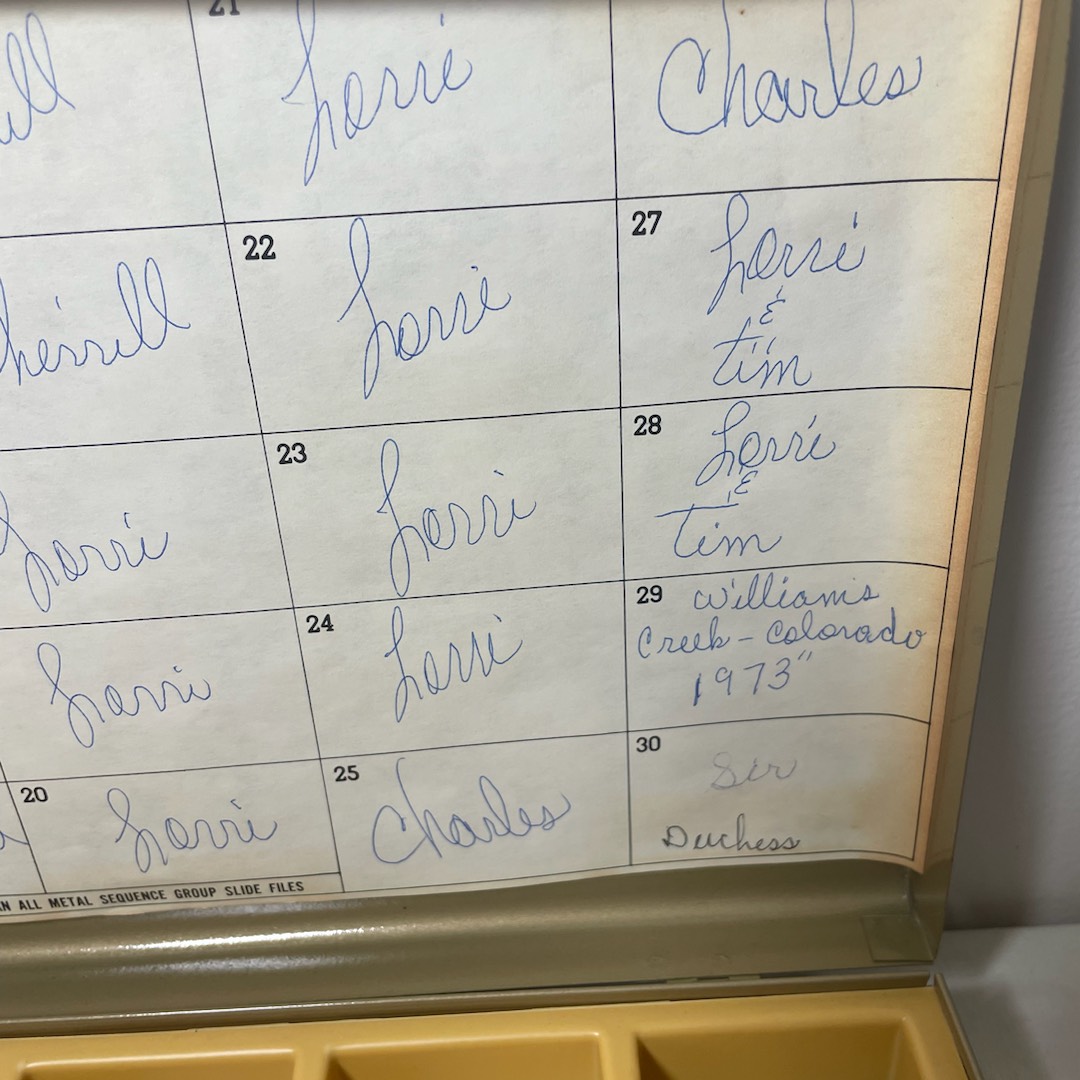 21
Lorri
Charles
Cherrill
22
Lorri
27
Lorri
&
Tim
Lorri
23
Lorri
28
Lorri
&
Tim
Lorri
24
Lorri
29 Williams
Creek - Colorado
1973"
20
Lorri
25
Charles
30
Sir
Duchess
AN ALL METAL SEQUENCE GROUP SLIDE FILES